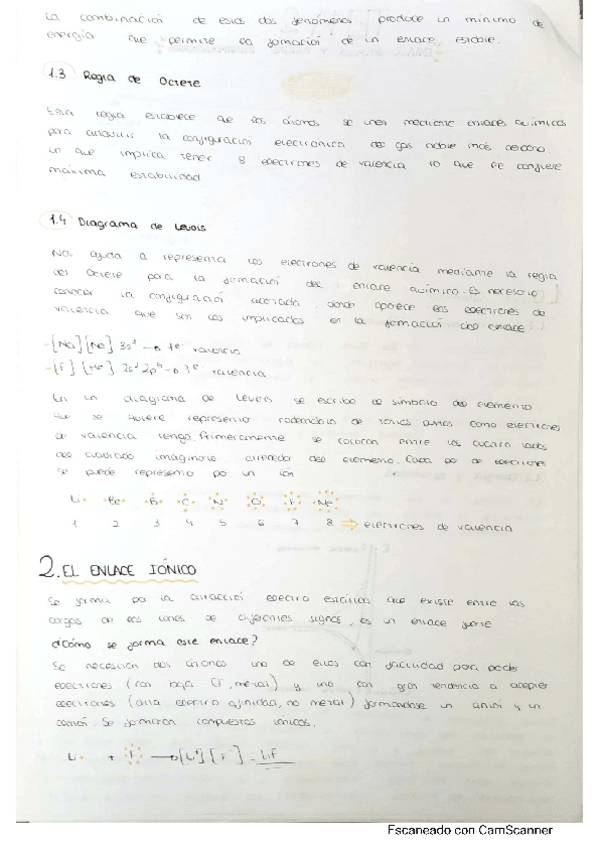 La combinación de estos dos fenómenos produce un mínimo de
energía que permite la formación de un enlace estable.
1.3 Regla de Octete
Esta regla establece que los átomos se unen mediante enlaces químicos
para adquirir la configuración electrónica del gas noble más cercano
lo que implica tener 8 electrones de valencia lo que le confiere
máxima estabilidad
1.4 Diagrama de Lewis
Nos ayuda a representar los electrones de valencia mediante la regla
del Octete para la formación del enlace químico. Es necesario
conocer la configuración donde aparece los electrones de
valencia que son los implicados en la formación del enlace
-[Na] [Ne] 3s¹ → 1e⁻ valencia
-[F] 2s² → valencia
En un diagrama de Lewis se escribe el símbolo del elemento
que se quiere representar rodeándolo de tantos puntos como electrones
de valencia tenga. Primeramente se colocan entre los cuatro lados
del cuadrado imaginario alrededor del elemento. Cada par de electrones
se puede representar por un
Li Be B C N O F Ne
1 2 3 4 5 6 7 8 → electrones de valencia
2. EL ENLACE IÓNICO
Se forma por la atracción electro estática que existe entre las
cargas de los iones de diferentes signos, es un enlace fuerte
¿Cómo se forma este enlace?
Se necesitan dos átomos uno de ellos con facilidad para perder
electrones (con baja EI, metal) y uno con gran tendencia a aceptar
electrones (alta electro afinidad, no metal) formándose un anión y un
catión. Se formaran compuestos iónicos.
Li + F → [Li⁺] [F⁻] = LiF
Escaneado con CamScanner